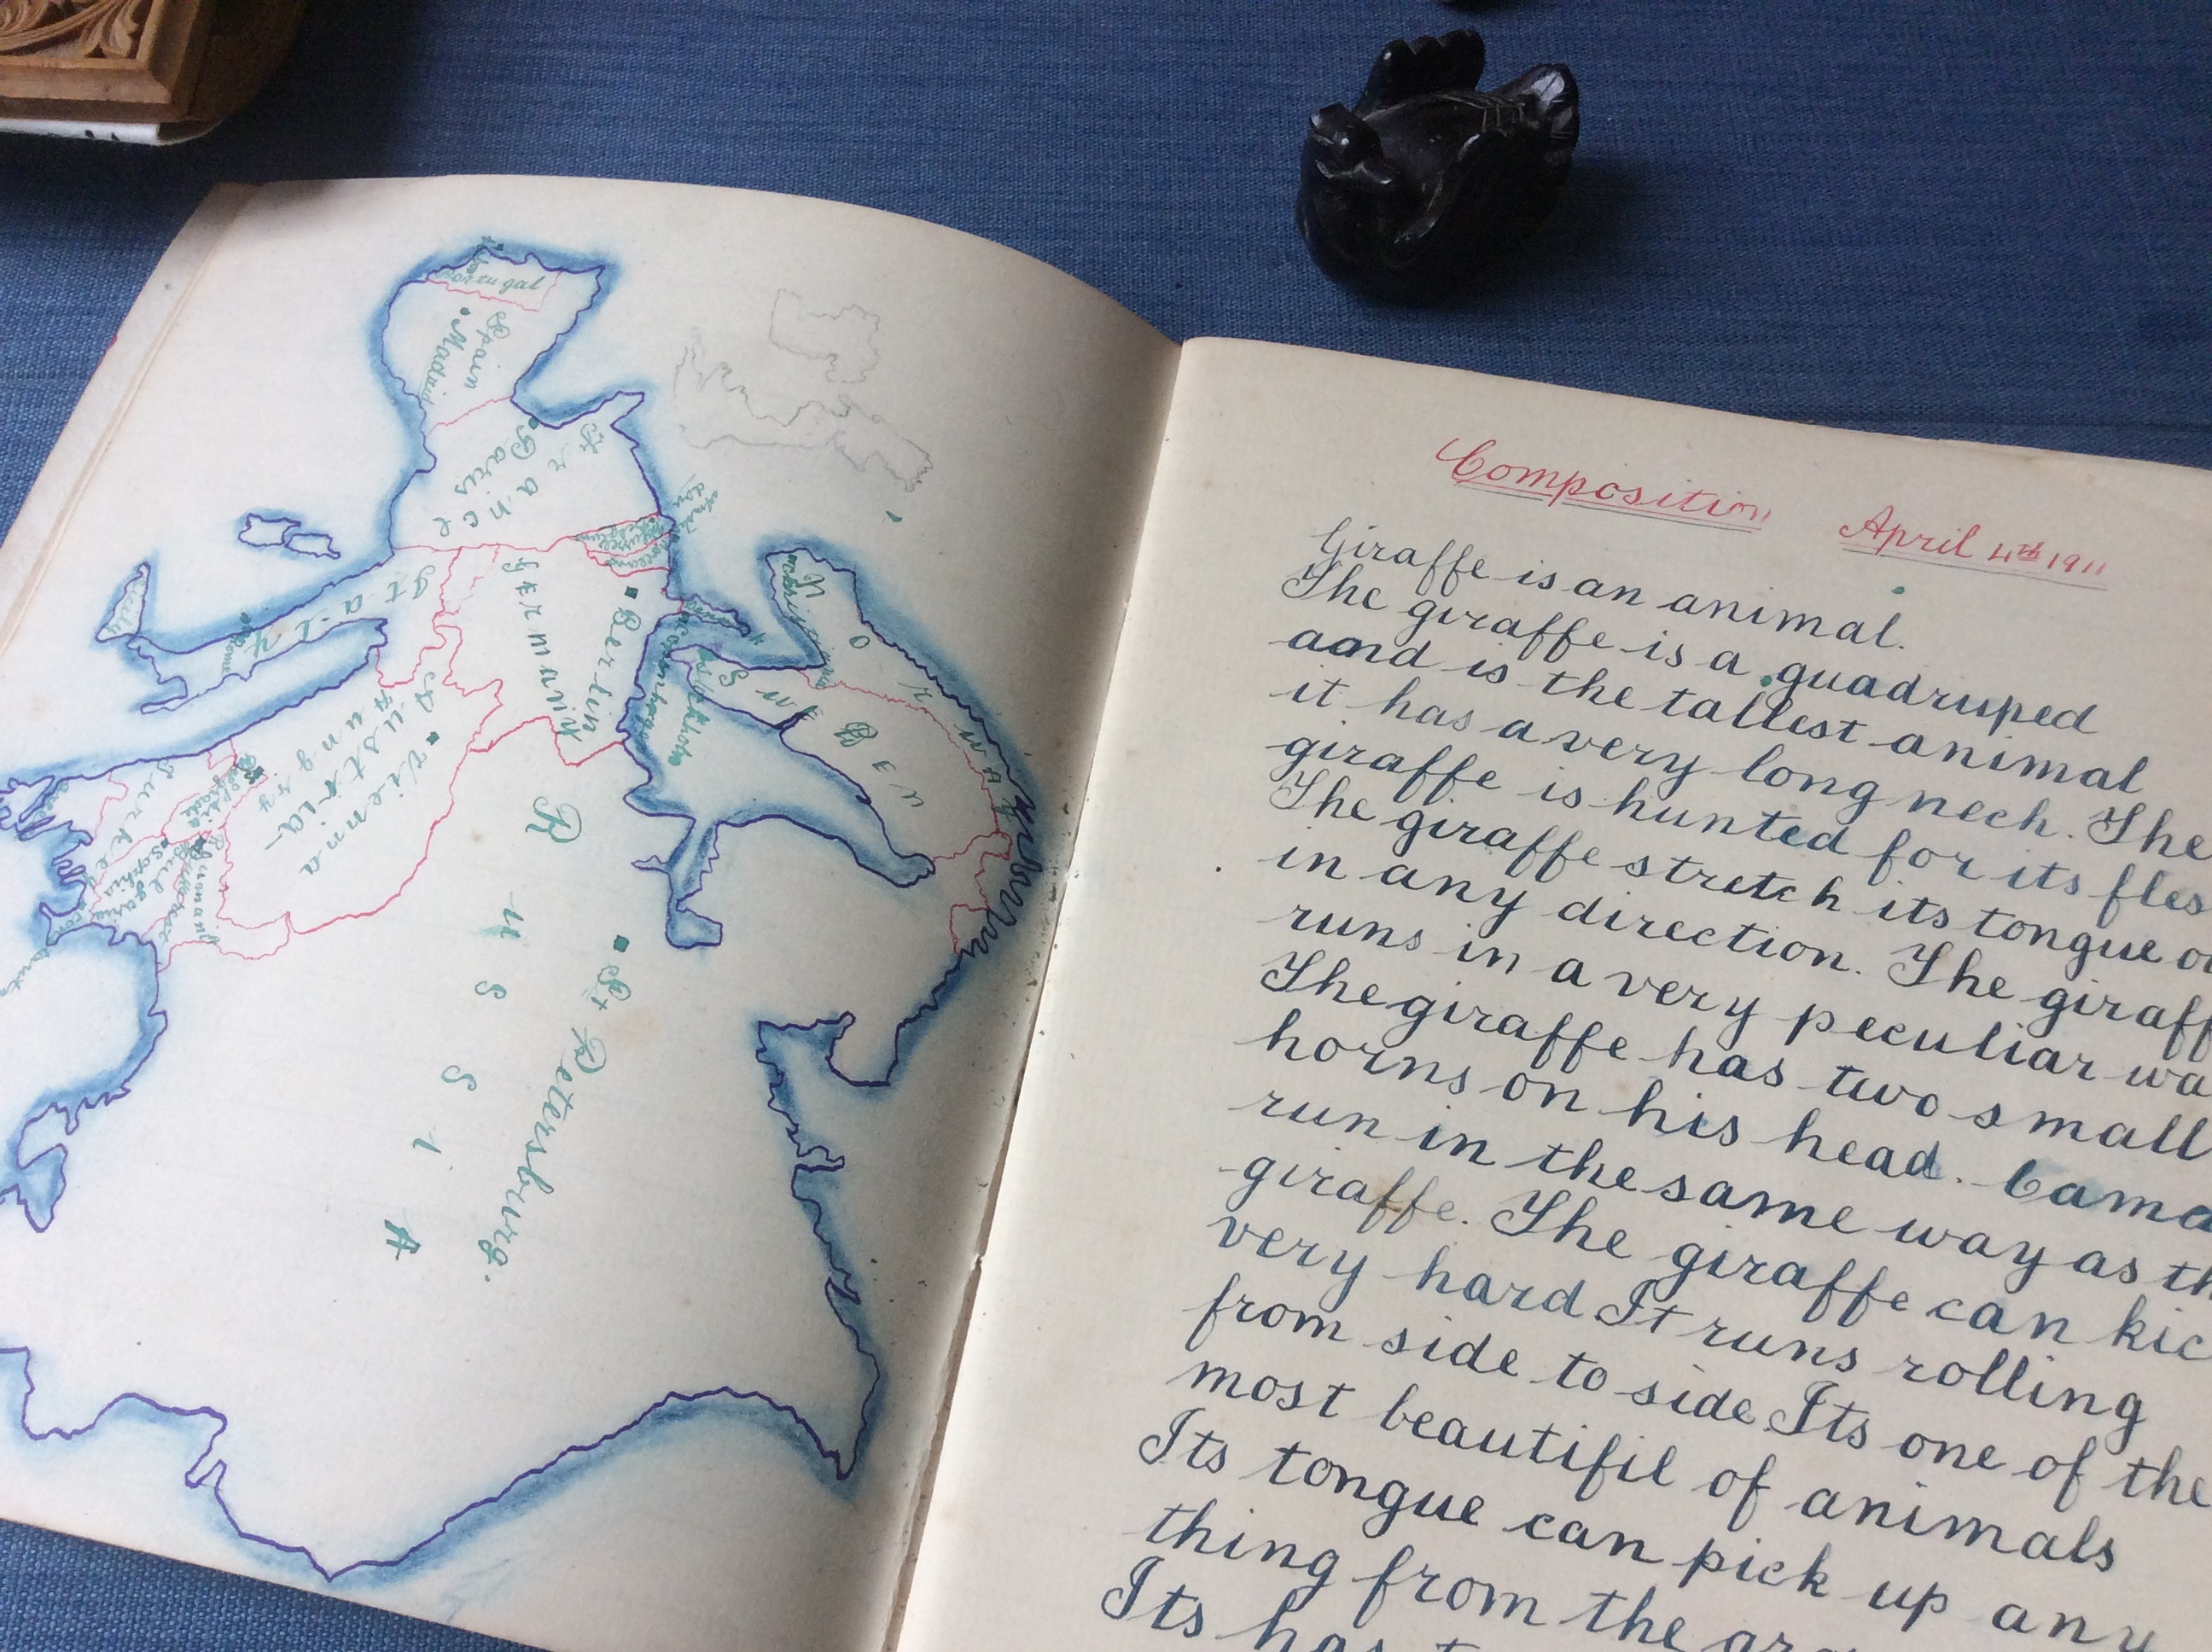 Portugal
Spain
Madrid
France
Paris
Germany
Berlin
Italy
Rome
Sicily
Austria
Hungry
Vienna
Turkey
Belgrade
Bulgaria
Sophia
Norway
Sweden
Russia
St Petersburg.
Composition April 4th 1911
Giraffe is an animal.
The giraffe is a quadruped
aand is the tallest animal
it has a very long nech. The
giraffe is hunted for its fles
The giraffe stretch its tongue
in any direction. The giraff
runs in a very peculiar wa
The giraffe has two small
horns on his head. Came
run in the same way as th
giraffe. The giraffe can kic
very hard It runs rolling
from side to side Its one of the
most beautifil of animals
Its tongue can pick up any
thing from the
Its has